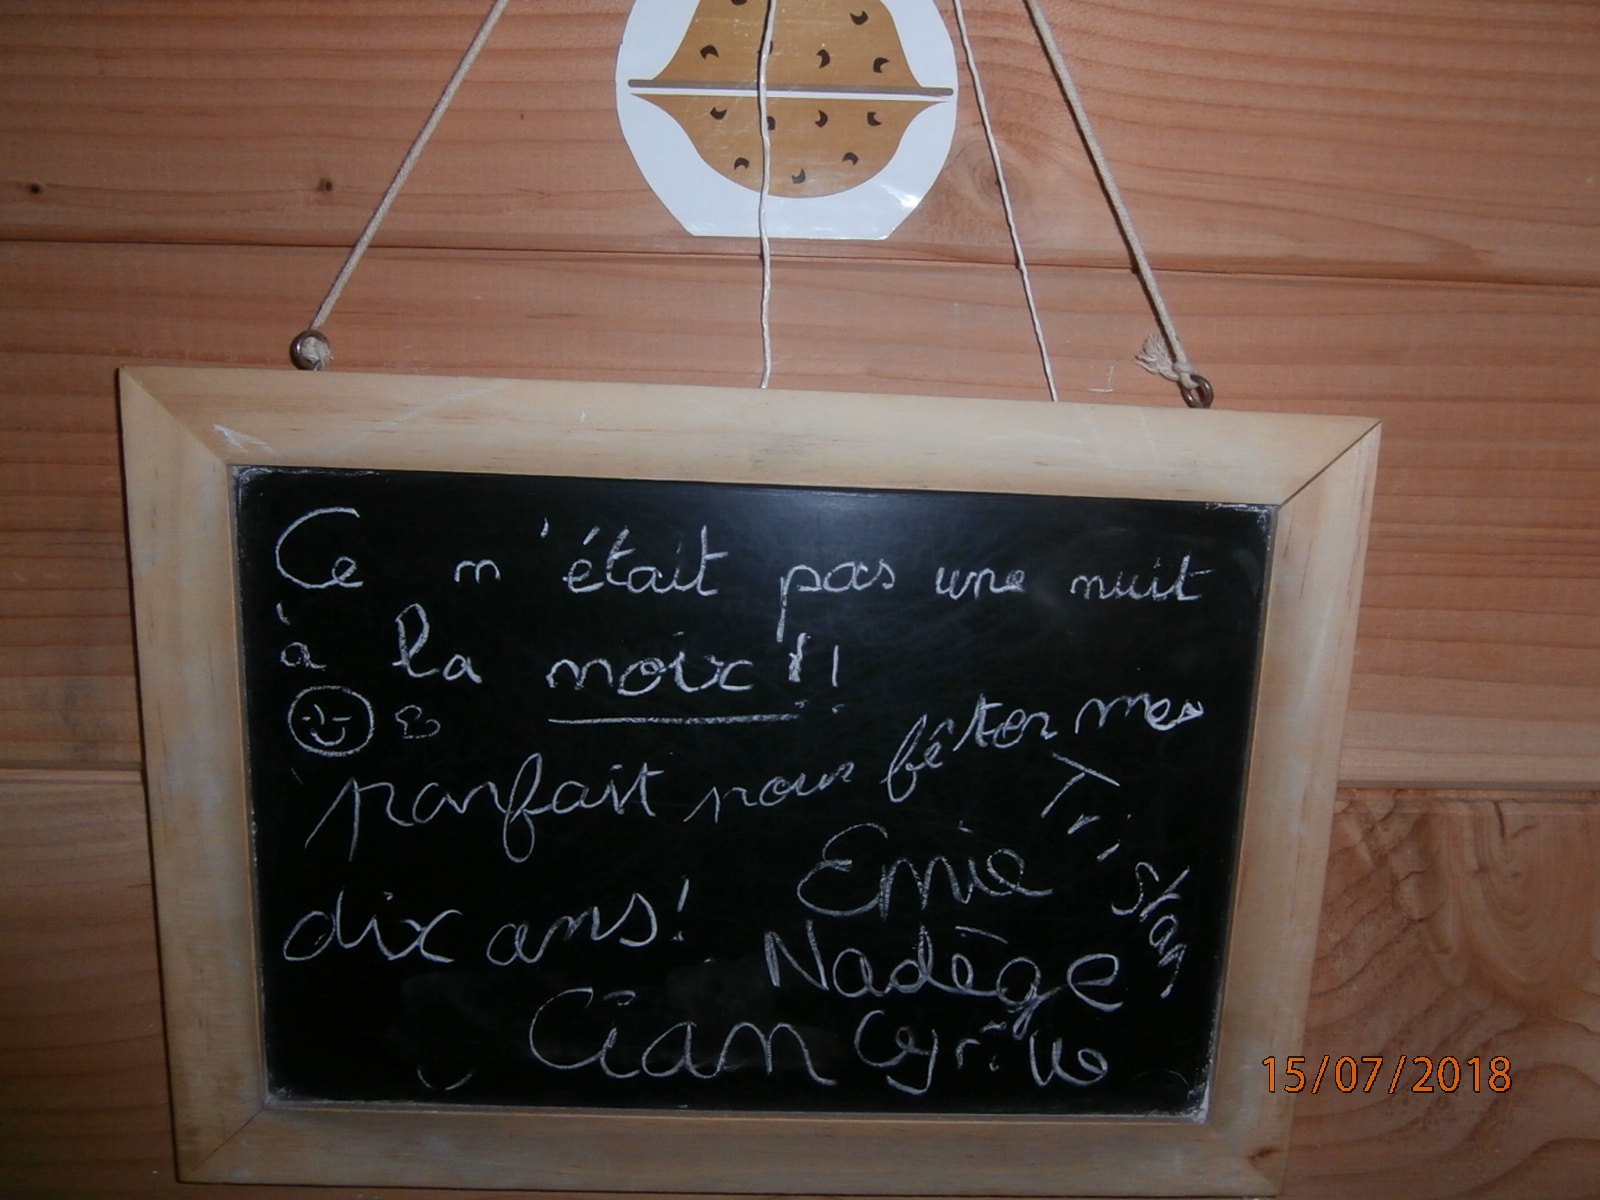 Ce n'était pas une nuit
à la noix !!
parfait pour fêter mes
dix ans!
Tristan
Emie
Nadège
Cian Cyrille
15/07/2018